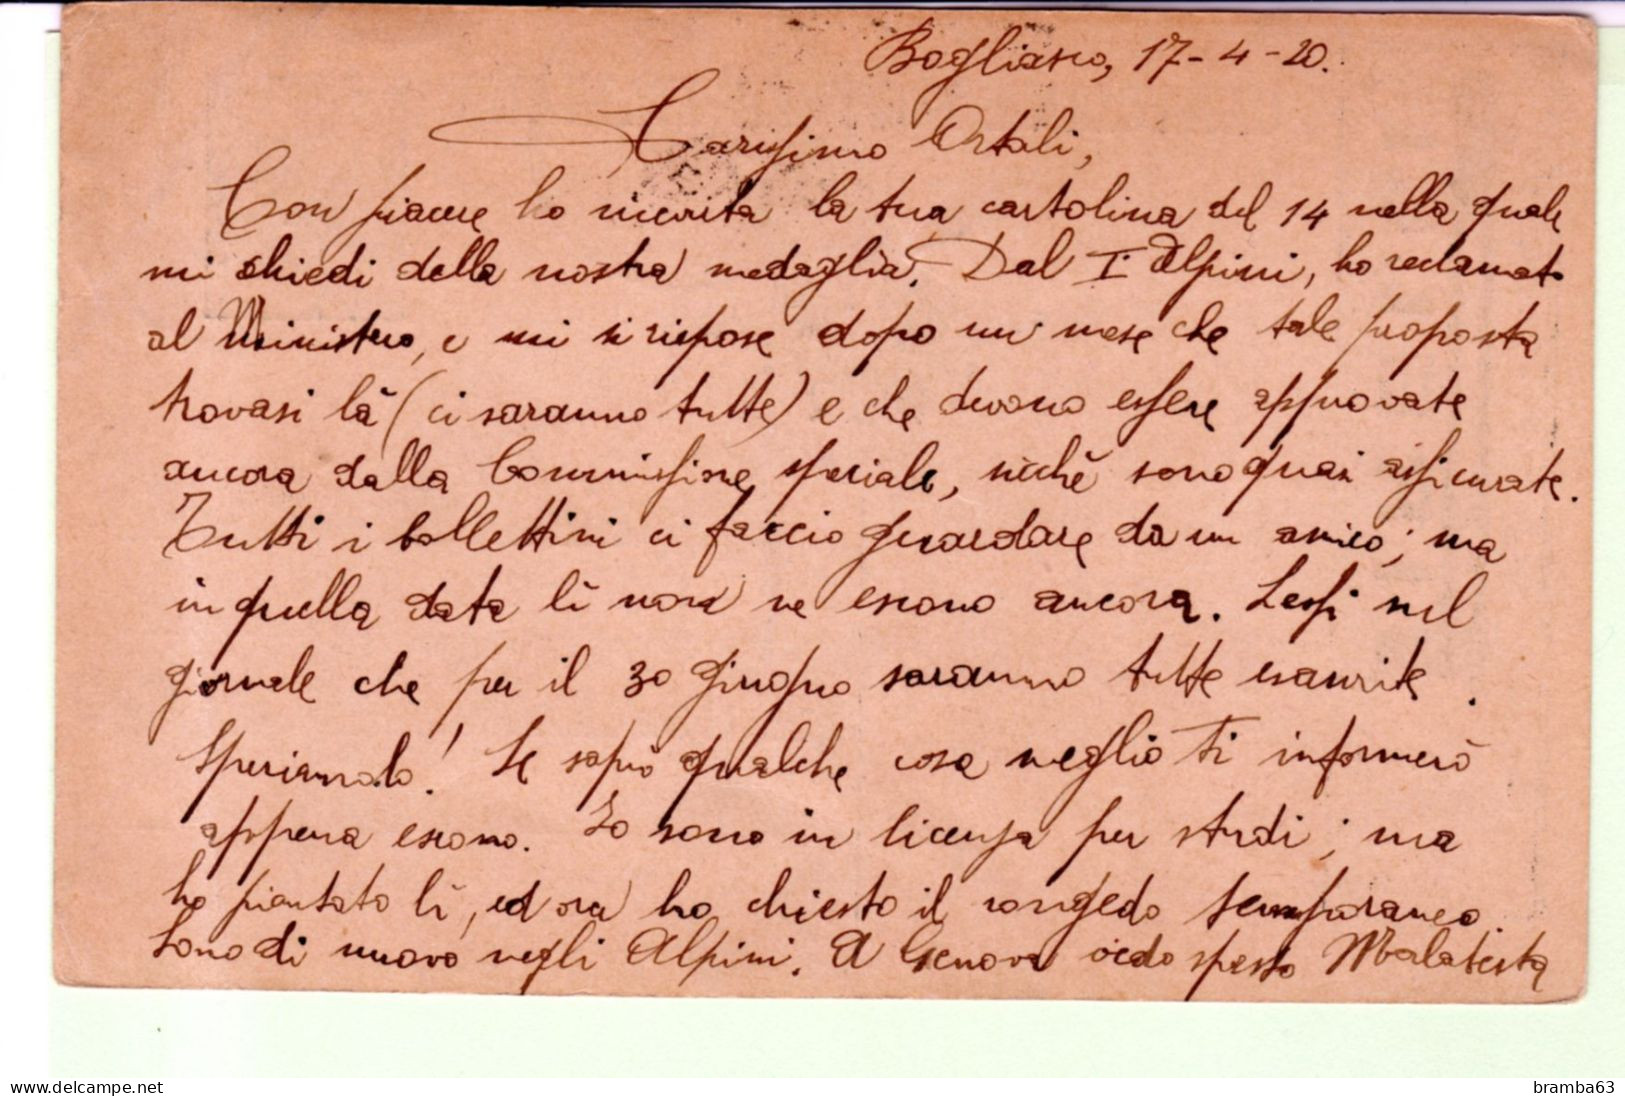 Bogliasco, 17-4-20.
Carissimo Ortali,
Con piacere ho ricevuta la tua cartolina del 14 nella quale
mi chiedi della nostra medaglia. Dal I° Alpini, ho reclamato
al Ministero, e mi si rispose dopo un mese che tale proposta
trovasi là (ci saranno tutte) e che devono essere approvate
ancora dalla Commissione speciale, sicchè sono quasi assicurate.
Tutti i bollettini ci faccio guardare da un amico; ma
in quella data lì non ve escono ancora. Lessi nel
giornale che per il 30 giugno saranno tutte esaurite.
Speriamolo! Se saprò qualche cosa meglio ti informerò
appena escono. Io sono in licenza per studi; ma
ho piantato lì, ed ora ho chiesto il congedo temporaneo.
Sono di nuovo negli Alpini. A Genova vedo spesso Malatesta
www.delcampe.net
bramba63